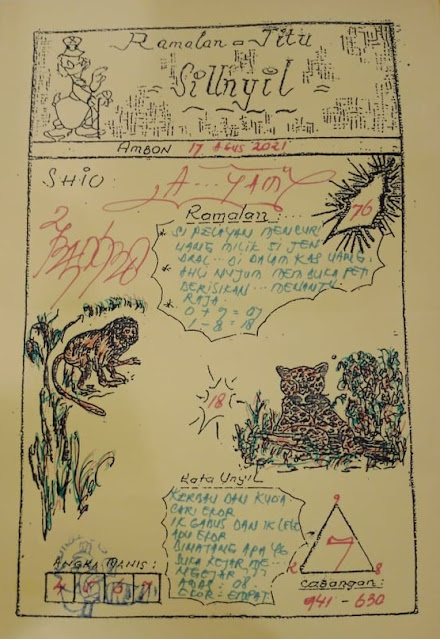 Ramalan = Jitu
Si Unyil
AMBON 17 AGUS 2021
SHIO
A...YAM
76
Ramalan:
* SI PELAYAN MENCURI
UANG MILIK SI JEN
DRAL... DI DALAM KAS UANG.
* AHLI NUJUM MEMBUKA PET
* RAJA.
0 + 7 = 07
1 - 8 = 18
18
Kata Unyil
KERBAU DAN KUDA
CARI EKOR
IK GABUS DAN IK LELE
ADU EKOR
BINATANG APA YG
SUKA KEJAR ME
NGEJAR
08
EKOR: EMPAT
ANGKA MANIS:
9
7
2 8
Cabangan:
941 - 630